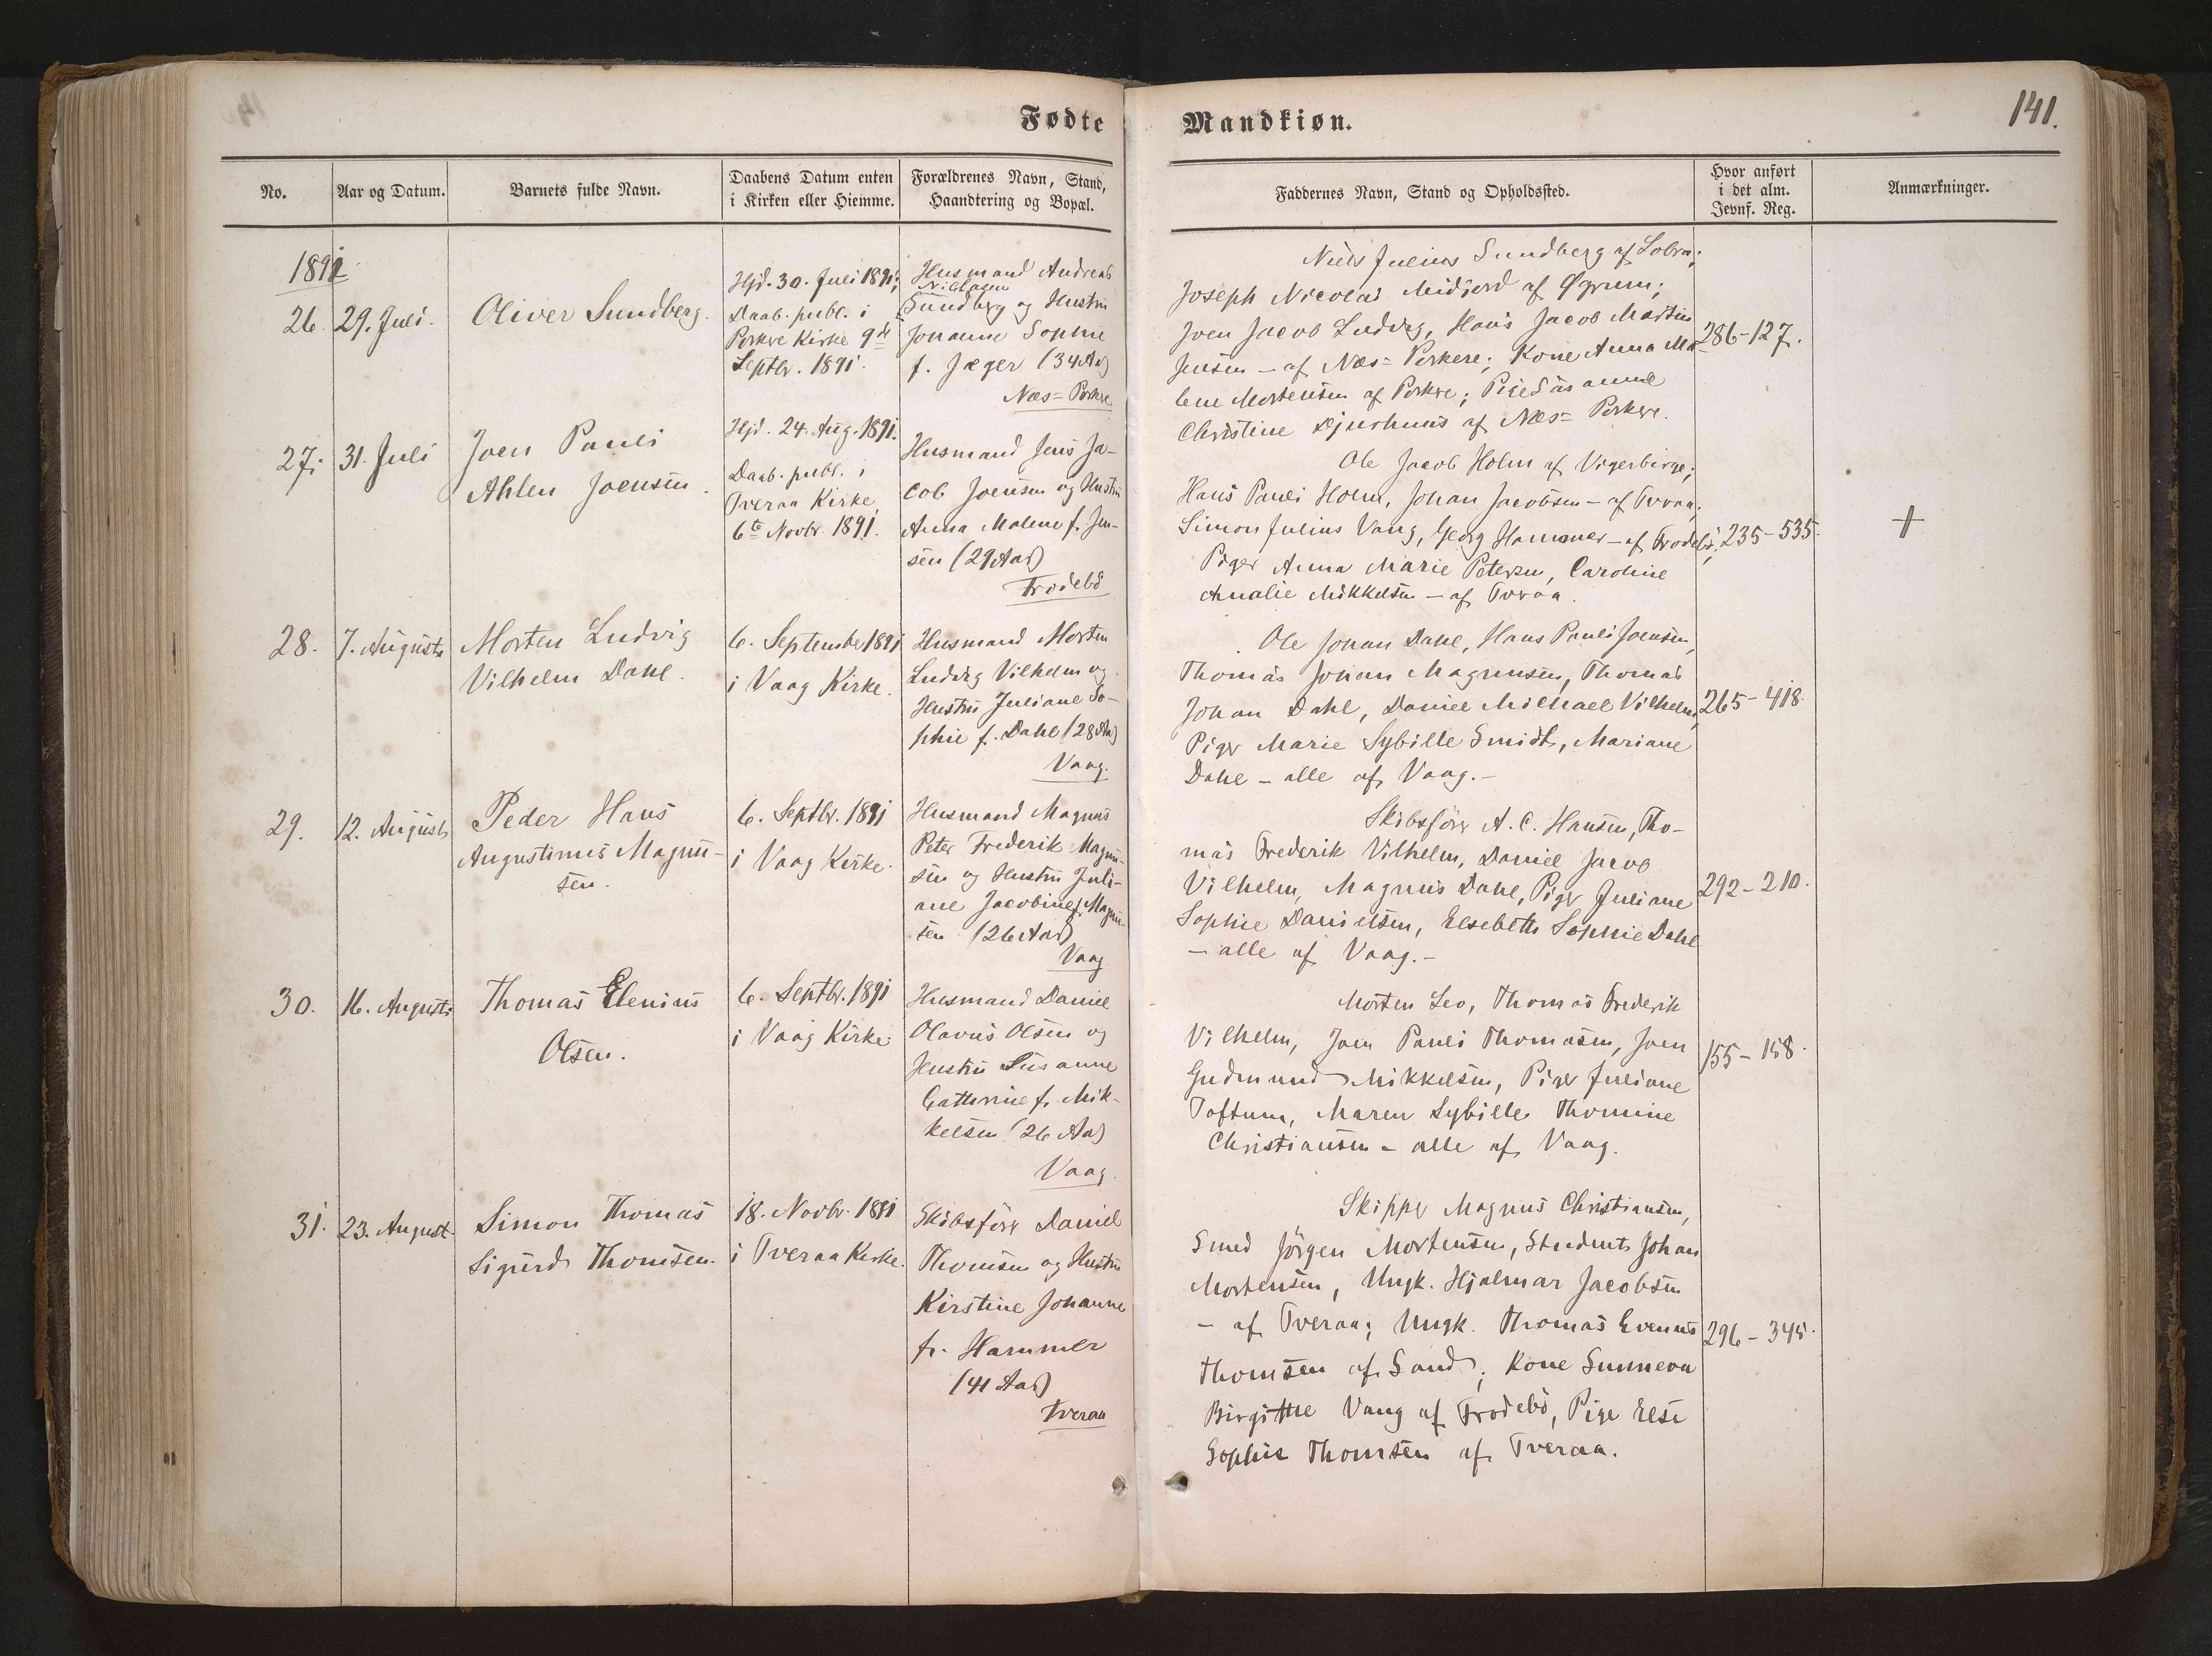 Fødte
Mandkiøn.
141.
No.
Aar og Datum.
Barnets fulde Navn.
Daabens Datum enten
i Kirken eller Hiemme.
Forældrenes Navn, Stand,
Haandtering og Bopæl.
Faddernes Navn, Stand og Opholdssted.
Hvor anført
i det alm.
Jevnf. Reg.
Anmærkninger.
1891
26.
29. Juli.
Oliver Sundberg.
Hjd. 30. Juli 1891;
Daab. publ. i
Porkere Kirke 9de
Septbr. 1891.
Husmand Andreas
Niclasen
Sundberg og Hustru
Johanne Sophie
f. Jæger (34 Aar)
Næs=Porkere
Niels Julius Sundberg af Lobra;
Joseph Nicolai Midjord af Øgrum;
Joen Jacob Ludvig, Hans Jacob Martin
Jensen - af Næs=Porkere; Kone Anna Ma-
lene Mortensen af Porkere; Pige Susanne
Christine Djurhuus af Næs=Porkere.
286-127.
27.
31. Juli
Joen Pauli
Ahlen Joensen.
Hjd. 24. Aug. 1891.
Daab. publ. i
Tveraa Kirke
6te Novbr. 1891.
Husmand Jens Ja-
cob Joensen og Hustru
Anna Malene f. Jen-
sen (29 Aar)
Frodebö
Ole Jacob Holm af Vigerbirge;
Hans Pauli Holm, Johan Jacobsen - af Tveraa;
Simon Julius Vang, Georg Hammer - af Frodebö;
Piger Anna Marie Petersen, Caroline
Amalie Mikkelsen - af Tveraa.
235-535.
+
28.
7. August
Morten Ludvig
Vilhelm Dahl.
6. September 1891
i Vaag Kirke.
Husmand Morten
Ludvig Vilhelm og
Hustru Juliane So-
phie f. Dahl (28 Aar)
Vaag.
Ole Johan Dahl, Hans Pauli Joensen,
Thomas Johan Magnusen, Thomas
Johan Dahl, Daniel Michael Vilhelm,
Piger Marie Sybille Smidt, Mariane
Dahl - alle af Vaag.-
265-418.
29.
12. August
Peder Hans
Augustinus Magnu-
sen.
6. Septbr. 1891
i Vaag Kirke.
Husmand Magnus
Peter Frederik Magnu-
sen og Hustru Juli-
ane Jacobine f. Magnu-
sen (26 Aar)
Vaag
Skibsförer A. C. Hansen, Tho-
mas Frederik Vilhelm, Daniel Jacob
Vilhelm, Magnus Dahl, Piger Juliane
Sophie Danielsen, Elsebeth Sophie Dahl
- alle af Vaag.-
292-210.
30.
16. August
Thomas Elenius
Olsen.
6. Septbr. 1891
i Vaag Kirke
Husmand Daniel
Olavus Olsen og
Hustru Susanne
Cathrine f. Mik-
kelsen (26 Aar)
Vaag.
Morten Leo, Thomas Frederik
Vilhelm, Joen Pauli Thomasen, Joen
Gudmund Mikkelsen, Piger Juliane
Toftum, Maren Sybille Thomine
Christiansen - alle af Vaag.
155-158.
31.
23. August.
Simon Thomas
Sigurd Thomsen.
18. Novbr. 1891
i Tveraa Kirke.
Skibsförer Daniel
Thomsen og Hustru
Kirstine Johanne
f. Hammer
(41 Aar)
Tveraa
Skipper Magnus Christiansen,
Smed Jörgen Mortensen, Student Johan
Mortensen, Ungk. Hjalmar Jacobsen
- af Tveraa; Ungk. Thomas Evenus
Thomsen af Sand; Kone Sunneva
Birgitte Vang af Frodebö, Pige Else
Sophie Thomsen af Tveraa.
296-345.